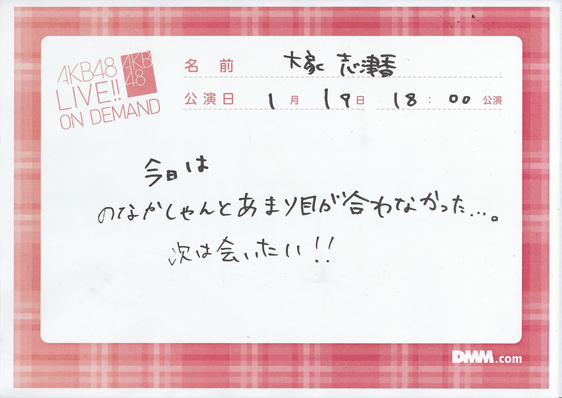 AKB48
LIVE!!
ON DEMAND
AKB
48
名前 大家 志津香
公演日 1月 19日 18:00 公演
今日は
のなかしゃんとあまり目が合わなかった…。
次は会いたい!!
DMM.com